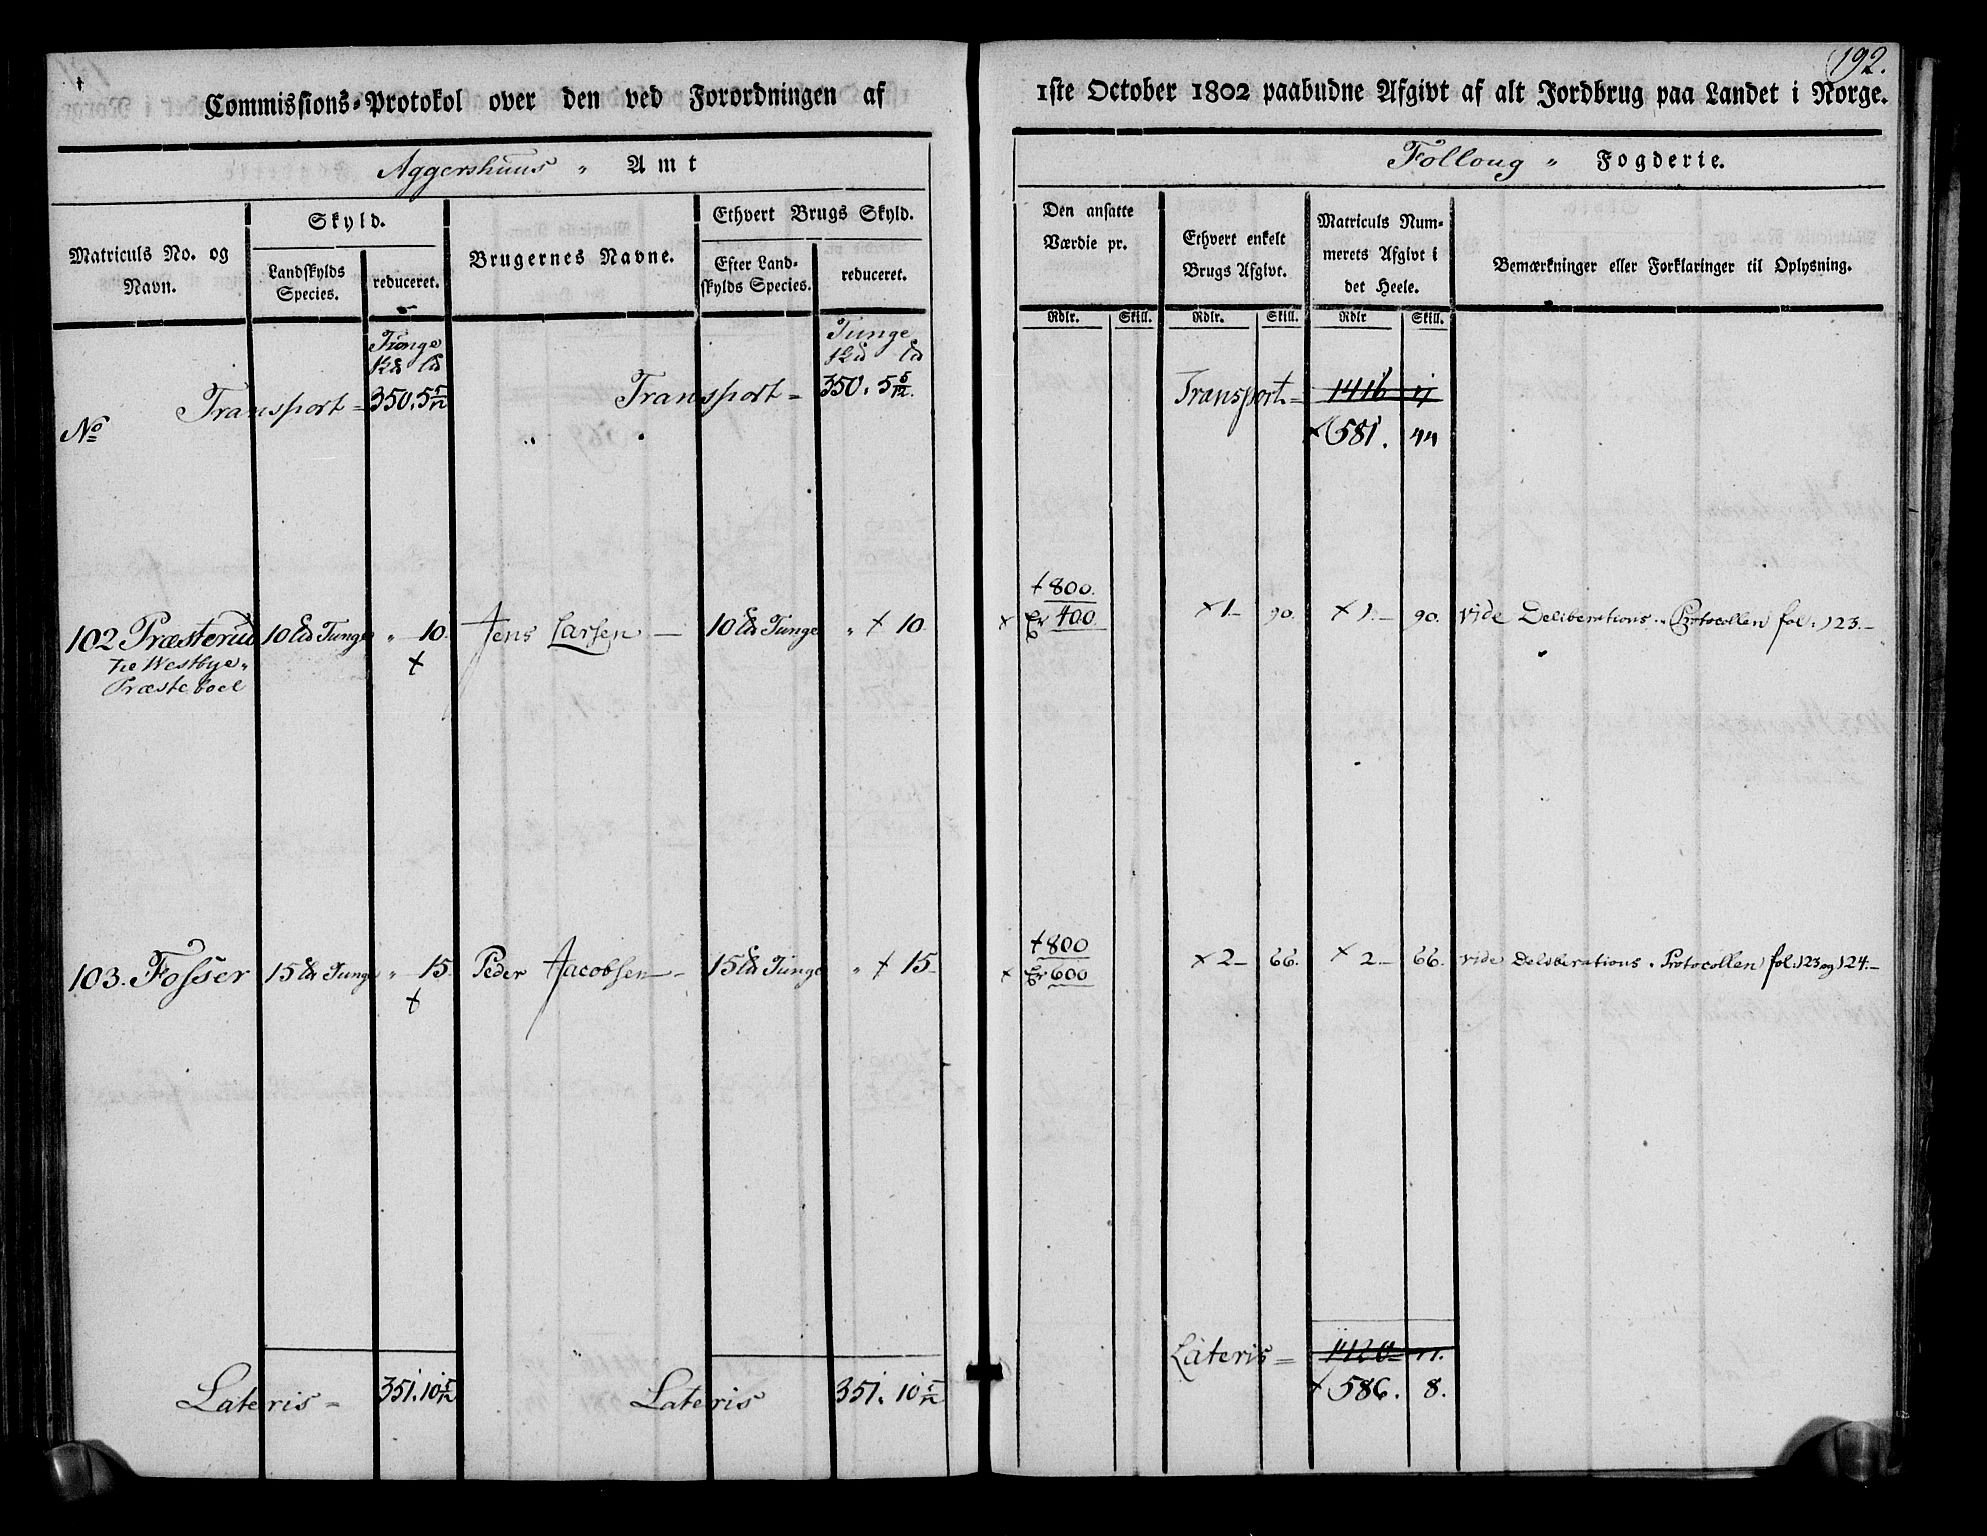 192.
Commissions-Protokol over den ved Forordningen af 1ste October 1802 paabudne Afgivt af alt Jordbrug paa Landet i Norge.
Aggershuus " Amt
Folloug " Fogderie.
Matriculs No. og Navn.
Skyld.
Landskylds Species.
reduceret.
Brugernes Navne.
Ethvert Brugs Skyld.
Efter Landskylds Species.
reduceret.
Den ansatte Værdie pr.
Rdlr. Skill.
Ethvert enkelt Brugs Afgivt.
Rdlr. Skill.
Matriculs Nummerets Afgivt i det Heele.
Rdlr Skill.
Bemærkninger eller Forklaringer til Oplysning.
Tunge Tunge
No Transport = 350. 5 5/12 Transport = 350. 5 5/12. Transport = 1416 11
× 581. 44
102 Præsterud 10 Ld Tunge " 10. Jens Larsen — 10 Ld Tunge " × 10. +800. 400 × 1 — 90. × 1. — 90. vide Deliberations-Protocollen fol: 123. —
til Westbye
Præsteboel
103. Fosser 15 Ld Tunge " 15. Peder Jacobsen — 15 Ld Tunge " × 15 +800 600 × 2 — 66. × 2 — 66. vide Deliberations-Protocollen fol: 123 og 124. —
Lateris = 351. 10 5/12 Lateris 351. 10 5/12 Lateris = 1420 11.
× 586. 8.